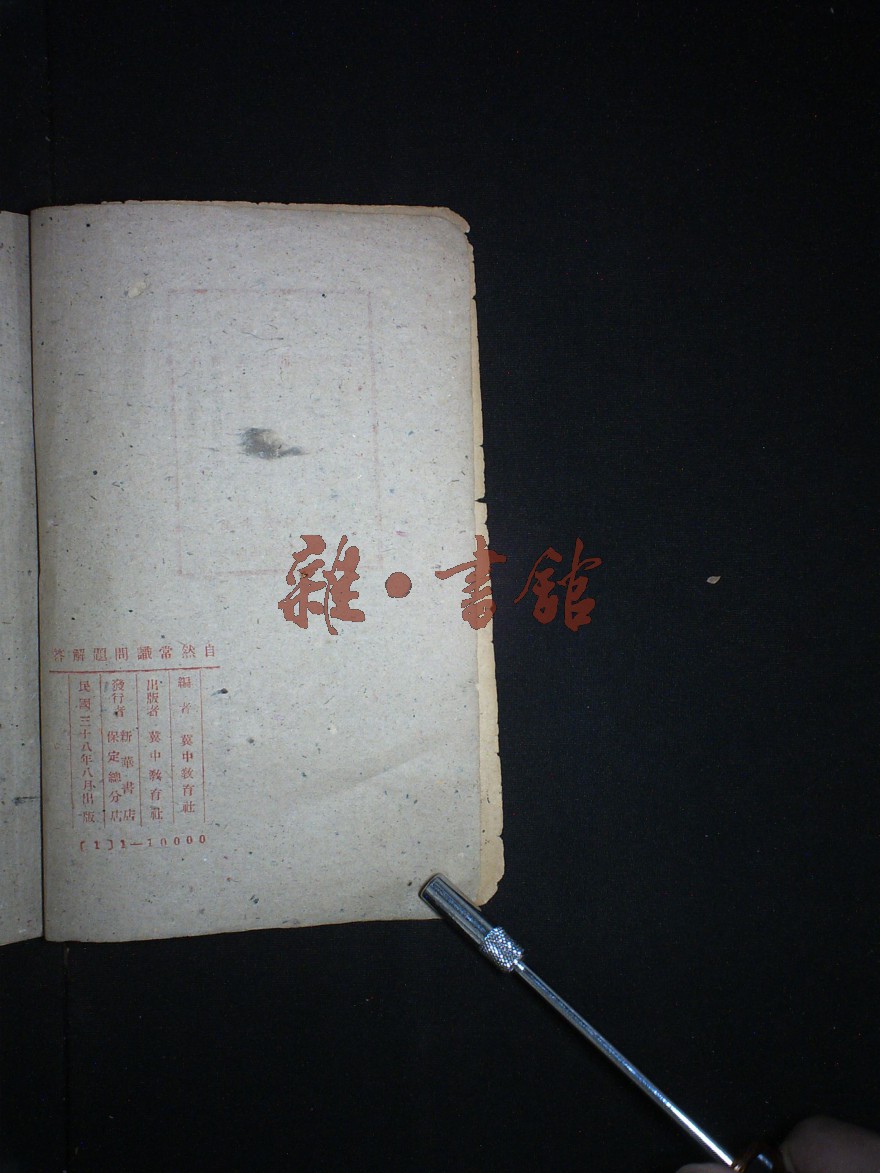 雜·書舘
自然常識問題解答
編者 冀中敎育社
出版者 冀中敎育社
發行者 新華書店
保定總分店
民國三十八年八月出版
[1]1—10000